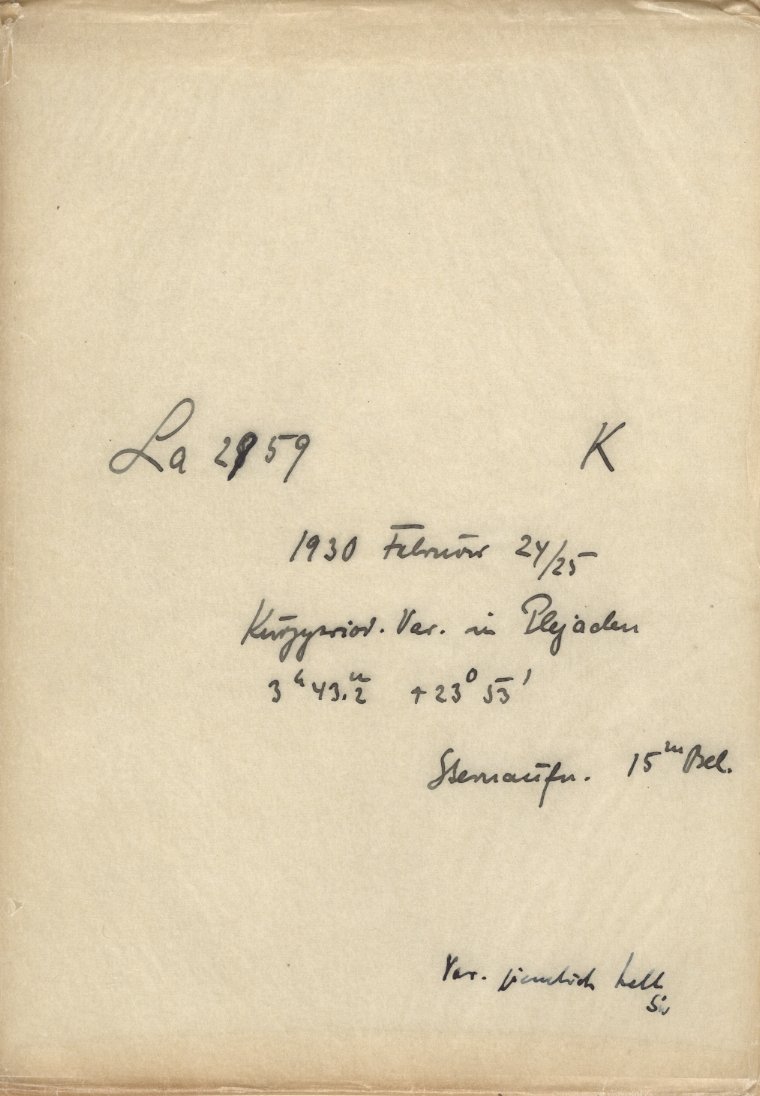 La 2959 K
1930 Februar 24/25
Kurzperiod. Var. in Plejaden
3ʰ43.ᵐ2 +23⁰ 53'
Sternaufn. 15ᵐ Bel.
Var. ziemlich hell